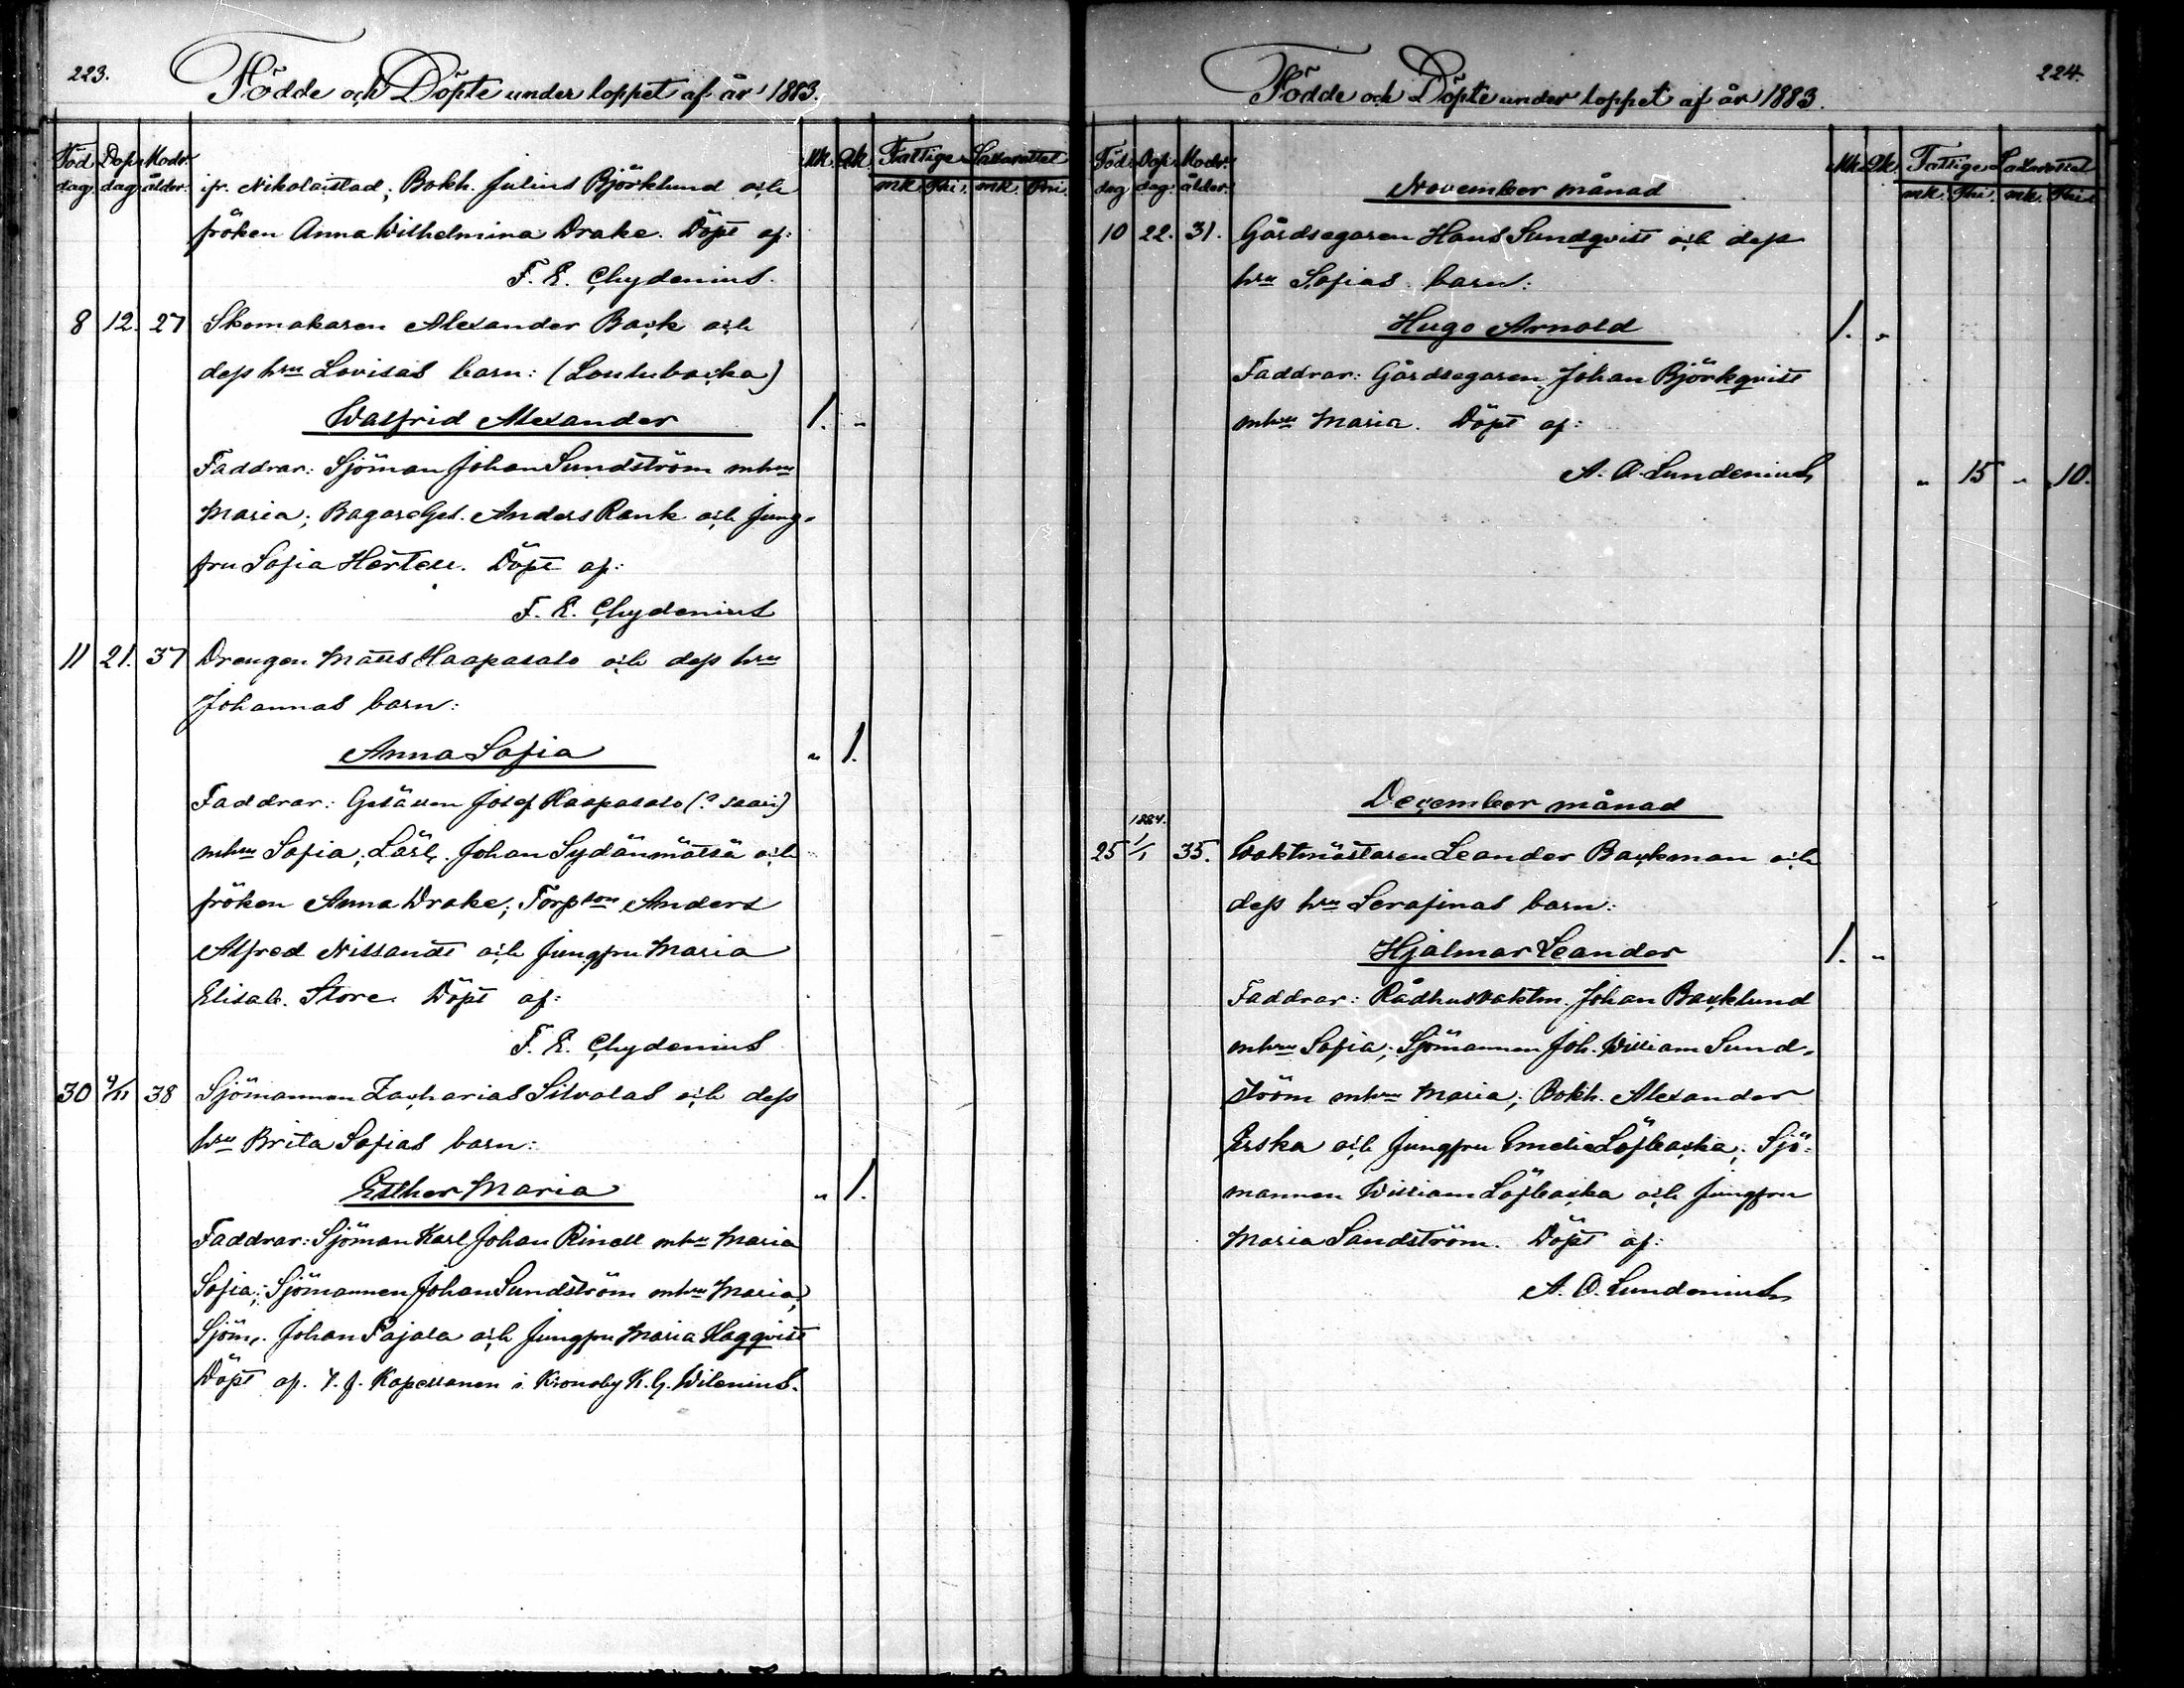 223.
Födde och Döpte under loppet af år 1883.
Föd. Dop. Modr. Mk. Qk. Fattige Lazarettet
dag. dag. ålder. mk. Pni. mk. Pni.
fr. Nikolaistad; Bokh. Julius Björklund och
fröken Anna Wilhelmina Drake. Döpt af:
F. E. Chydenius.
8 12. 27 Skomakaren Alexander Back och
dess hru Lovisas barn: (Loutubacka)
Walfrid Alexander 1. "
Faddrar: Sjöman Johan Sundström mhru
Maria; BagareGes. Anders Rank och Jung-
fru Sofia Hertell. Döpt af:
F. E. Chydenius
11 21. 37 Drengen Matts Haapasalo och dess hru
Johannas barn:
Anna Sofia " 1.
Faddrar: Gesällen Josef Haapasalo (? saari)
mhru Sofia; Lärl. Johan Sydänmätsä och
fröken Anna Drake; Torpson Anders
Alfred Nissandt och Jungfru Maria
Elisab. Store. Döpt af:
F. E. Chydenius
30 4/11 38 Sjömannen Zacharias Silvalas och dess
hru Brita Sofias barn:
Esther Maria " 1.
Faddrar: Sjöman Karl Johan Rinell mhru Maria
Sofia; Sjömannen Johan Sundström mhru Maria;
Sjöm. Johan Pajala och Jungfru Maria Hagqvist
Döpt af. V. J. Kapellanen i Kronoby K. G. Wilenius.
224.
Födde och Döpte under loppet af år 1883.
Föd. Dop. Modr. Mk. Qk. Fattige Lazarettet
dag dag. ålder. mk. Pni. mk. Pni
November månad
10 22. 31. Gårdsegaren Hans Sundqvist och dess
hru Sofias barn:
Hugo Arnold 1. "
Faddrar: Gårdsegaren Johan Björkqvist
mhru Maria. Döpt af:
A. O. Sundenius " 15 " 10.
December månad
1884.
25 1/1 35. Waktmästaren Leander Backman och
dess hru Serafinas barn:
Hjalmar Leander 1. "
Faddrar: Rådhusvaktm. Johan Backlund
mhru Sofia; Sjömannen Joh. William Sund-
ström mhru Maria; Bokh. Alexander
Erska och Jungfru Emelie Löfbacka; Sjö-
mannen William Löfbacka och Jungfru
Maria Sandström. Döpt af:
A. O. Sundenius